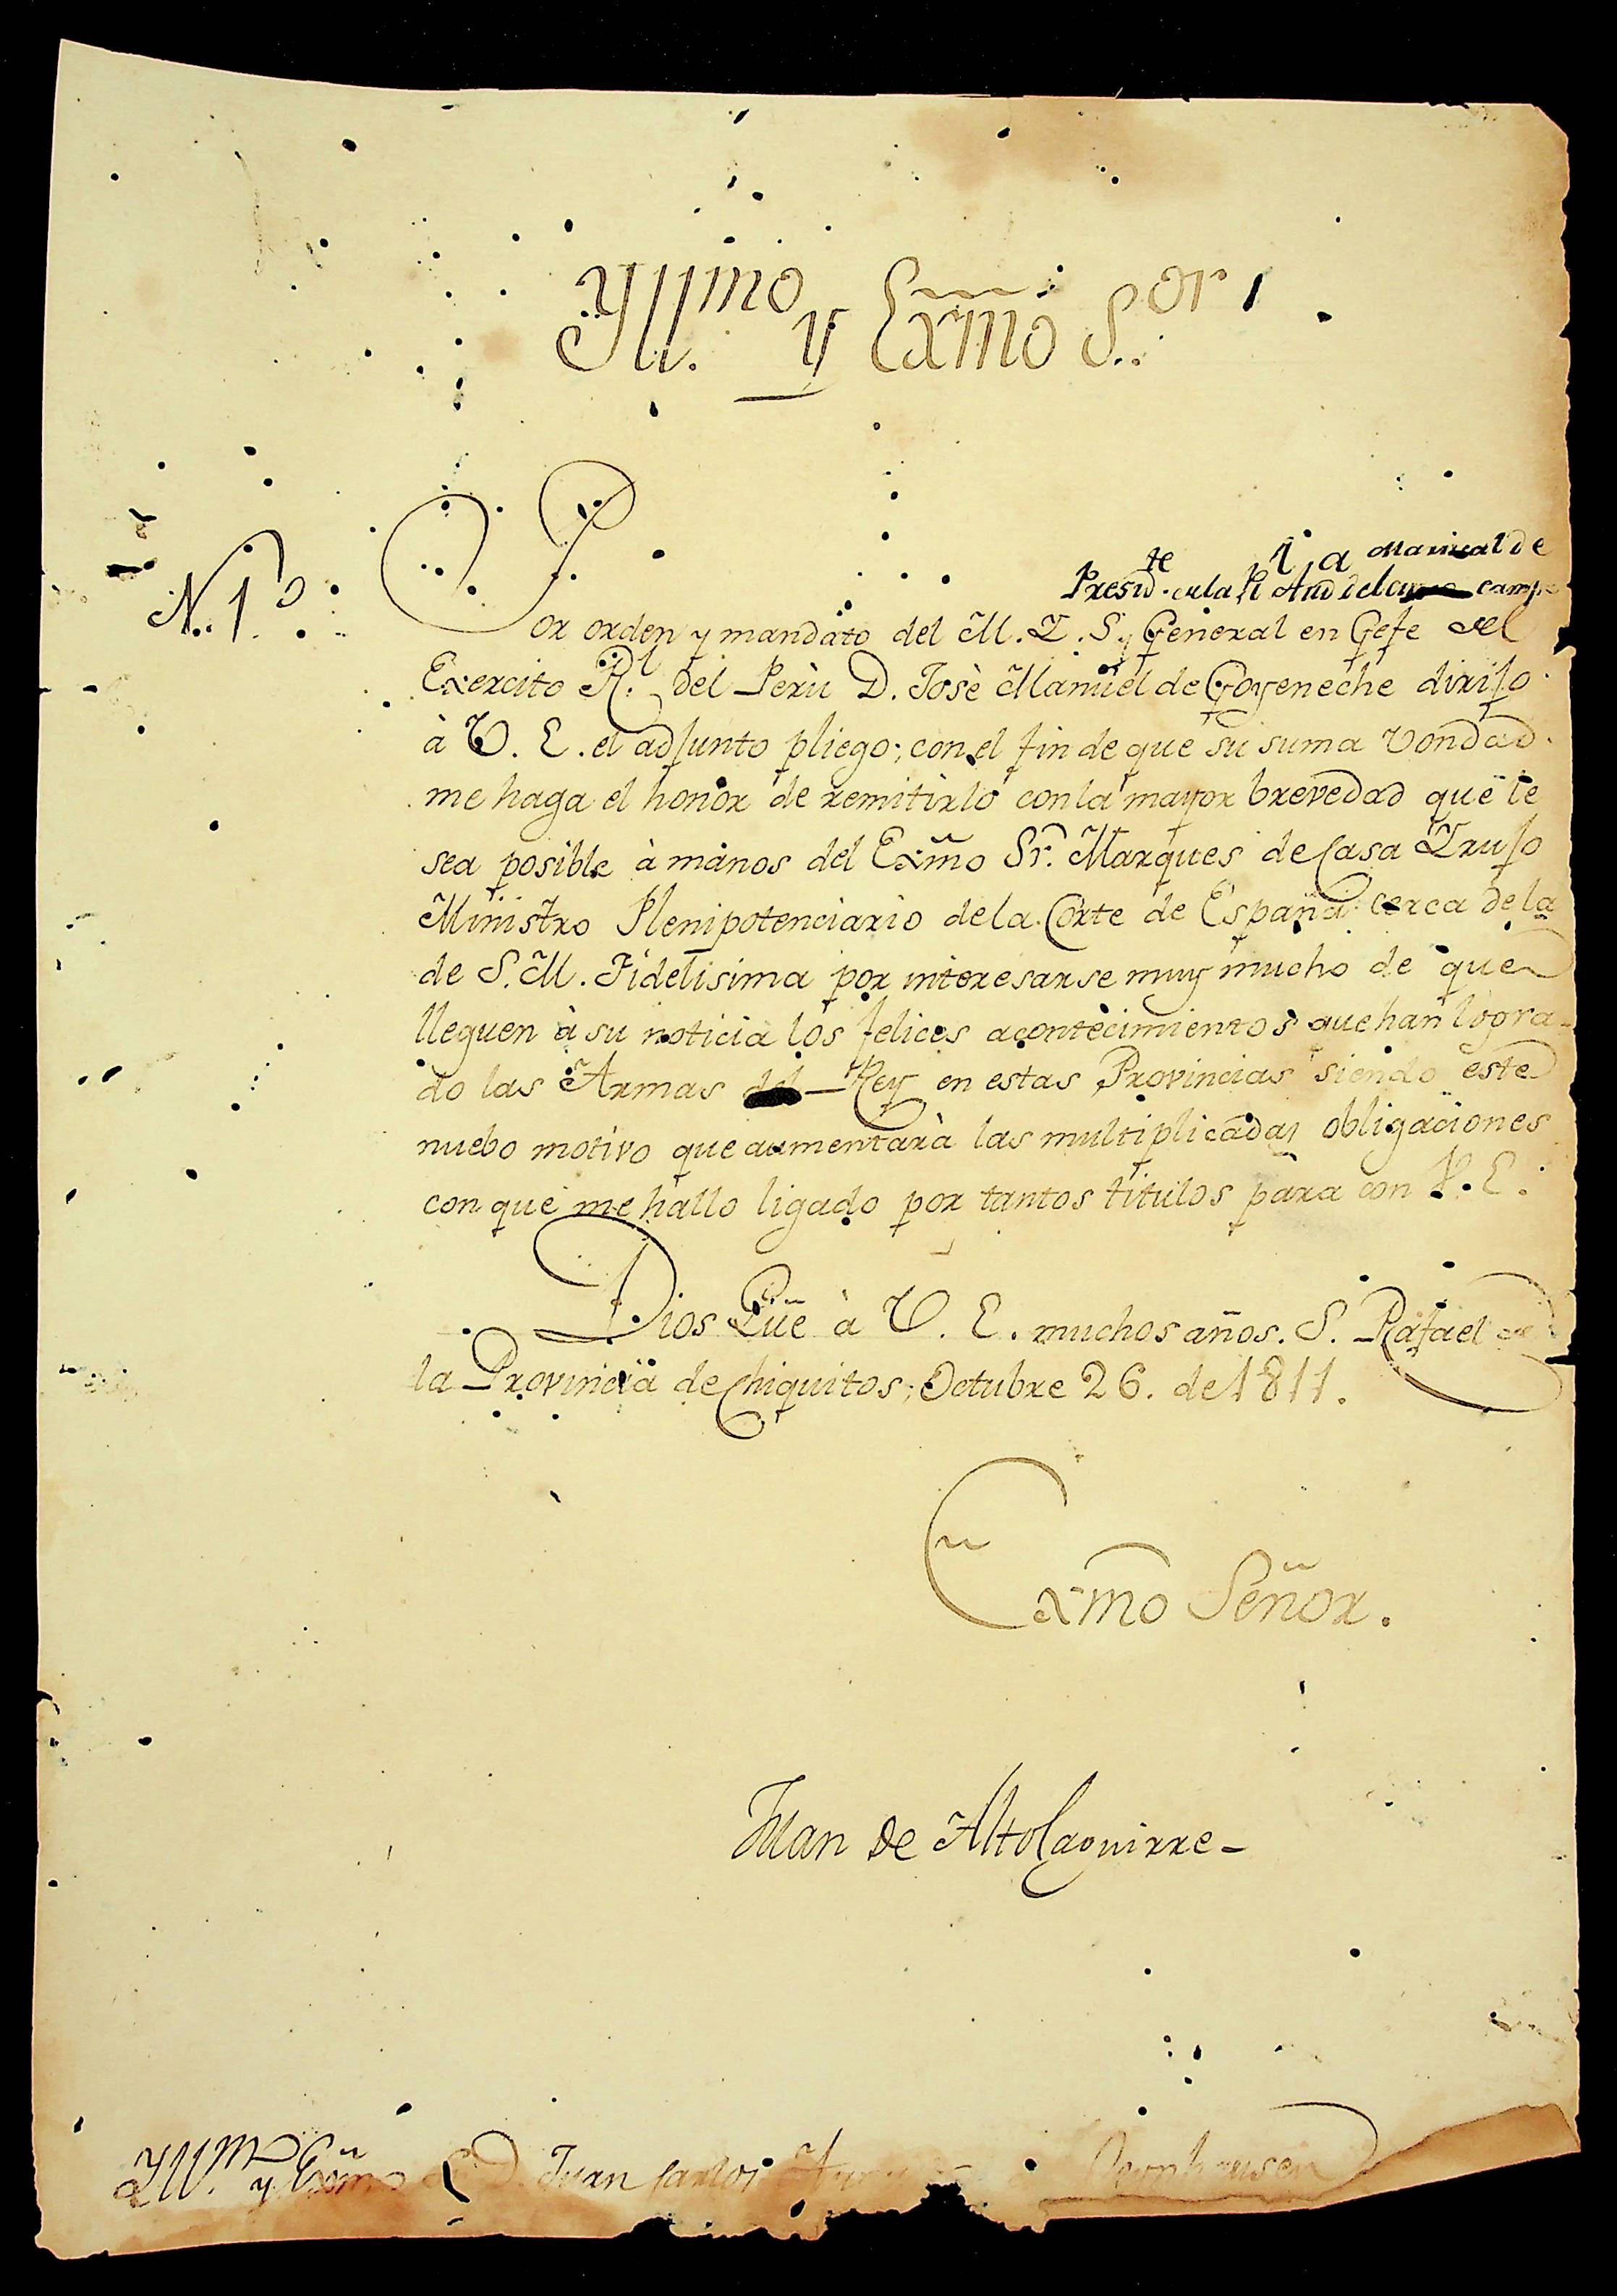 Yll.mo y Exmo S.or
N. 1º
Mariscal de
Presid.te de la Rl Aud.a del Cuzco campo
Por orden y mandato del M. I. S. General en Gefe del
Exercito Rl. del Perù D. Josè Manuel de Goyeneche dirijo
à V. E. el adjunto pliego; con el fin de que su suma vondad
me haga el honor de remitirlo con la mayor brevedad que le
sea posible à manos del Exmo Sr. Marques de Casa Irujo
Ministro Plenipotenciario de la Corte de España cerca de la
de S. M. Fidelisima por interesarse muy mucho de que
lleguen à su noticia los felices acontecimientos que han logra-
do las Armas del Rey en estas Provincias siendo este
nuebo motivo que aumentarà las multiplicadas obligaciones
con que me hallo ligado por tantos titulos para con V. E.
Dios Gũe à V. E. muchos años. S. Rafael de
la Provincia de Chiquitos; Octubre 26. de 1811.
Exmo Señor.
Juan de Altolaguirre
Yll.mo y Exmo S. D. Juan Carlos Oeynhausen